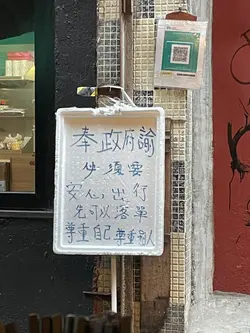 奉政府諭
使須要
安心出行
先可以落單
尊重自己 尊重別人